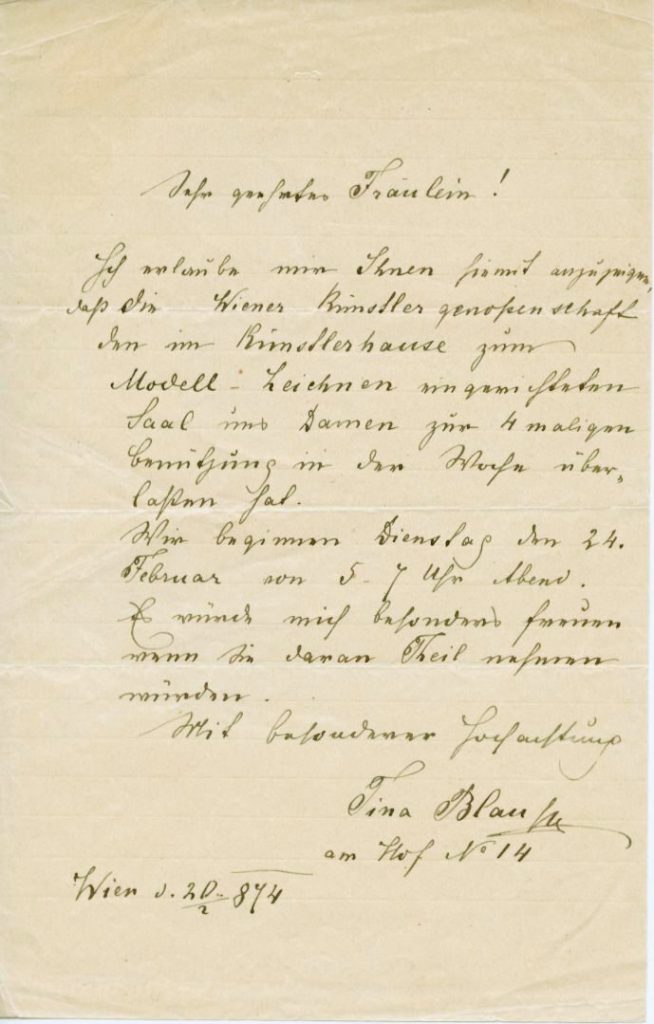 Sehr geehrtes Fräulein!
Ich erlaube mir Ihnen hiemit anzuzeigen,
daß die Wiener Künstlergenoßenschaft
den im Künstlerhause zum
Modell-Zeichnen eingerichteten
Saal uns Damen zur 4 maligen
Benützung in der Woche über-
laßen hat.
Wir beginnen Dienstag den 24.
Februar von 5-7 Uhr Abend.
Es würde mich besonders freuen
wenn Sie daran Theil nehmen
würden.
Mit besonderer Hochachtung
Tina Blau
am Hof No 14
Wien d. 20/2 874